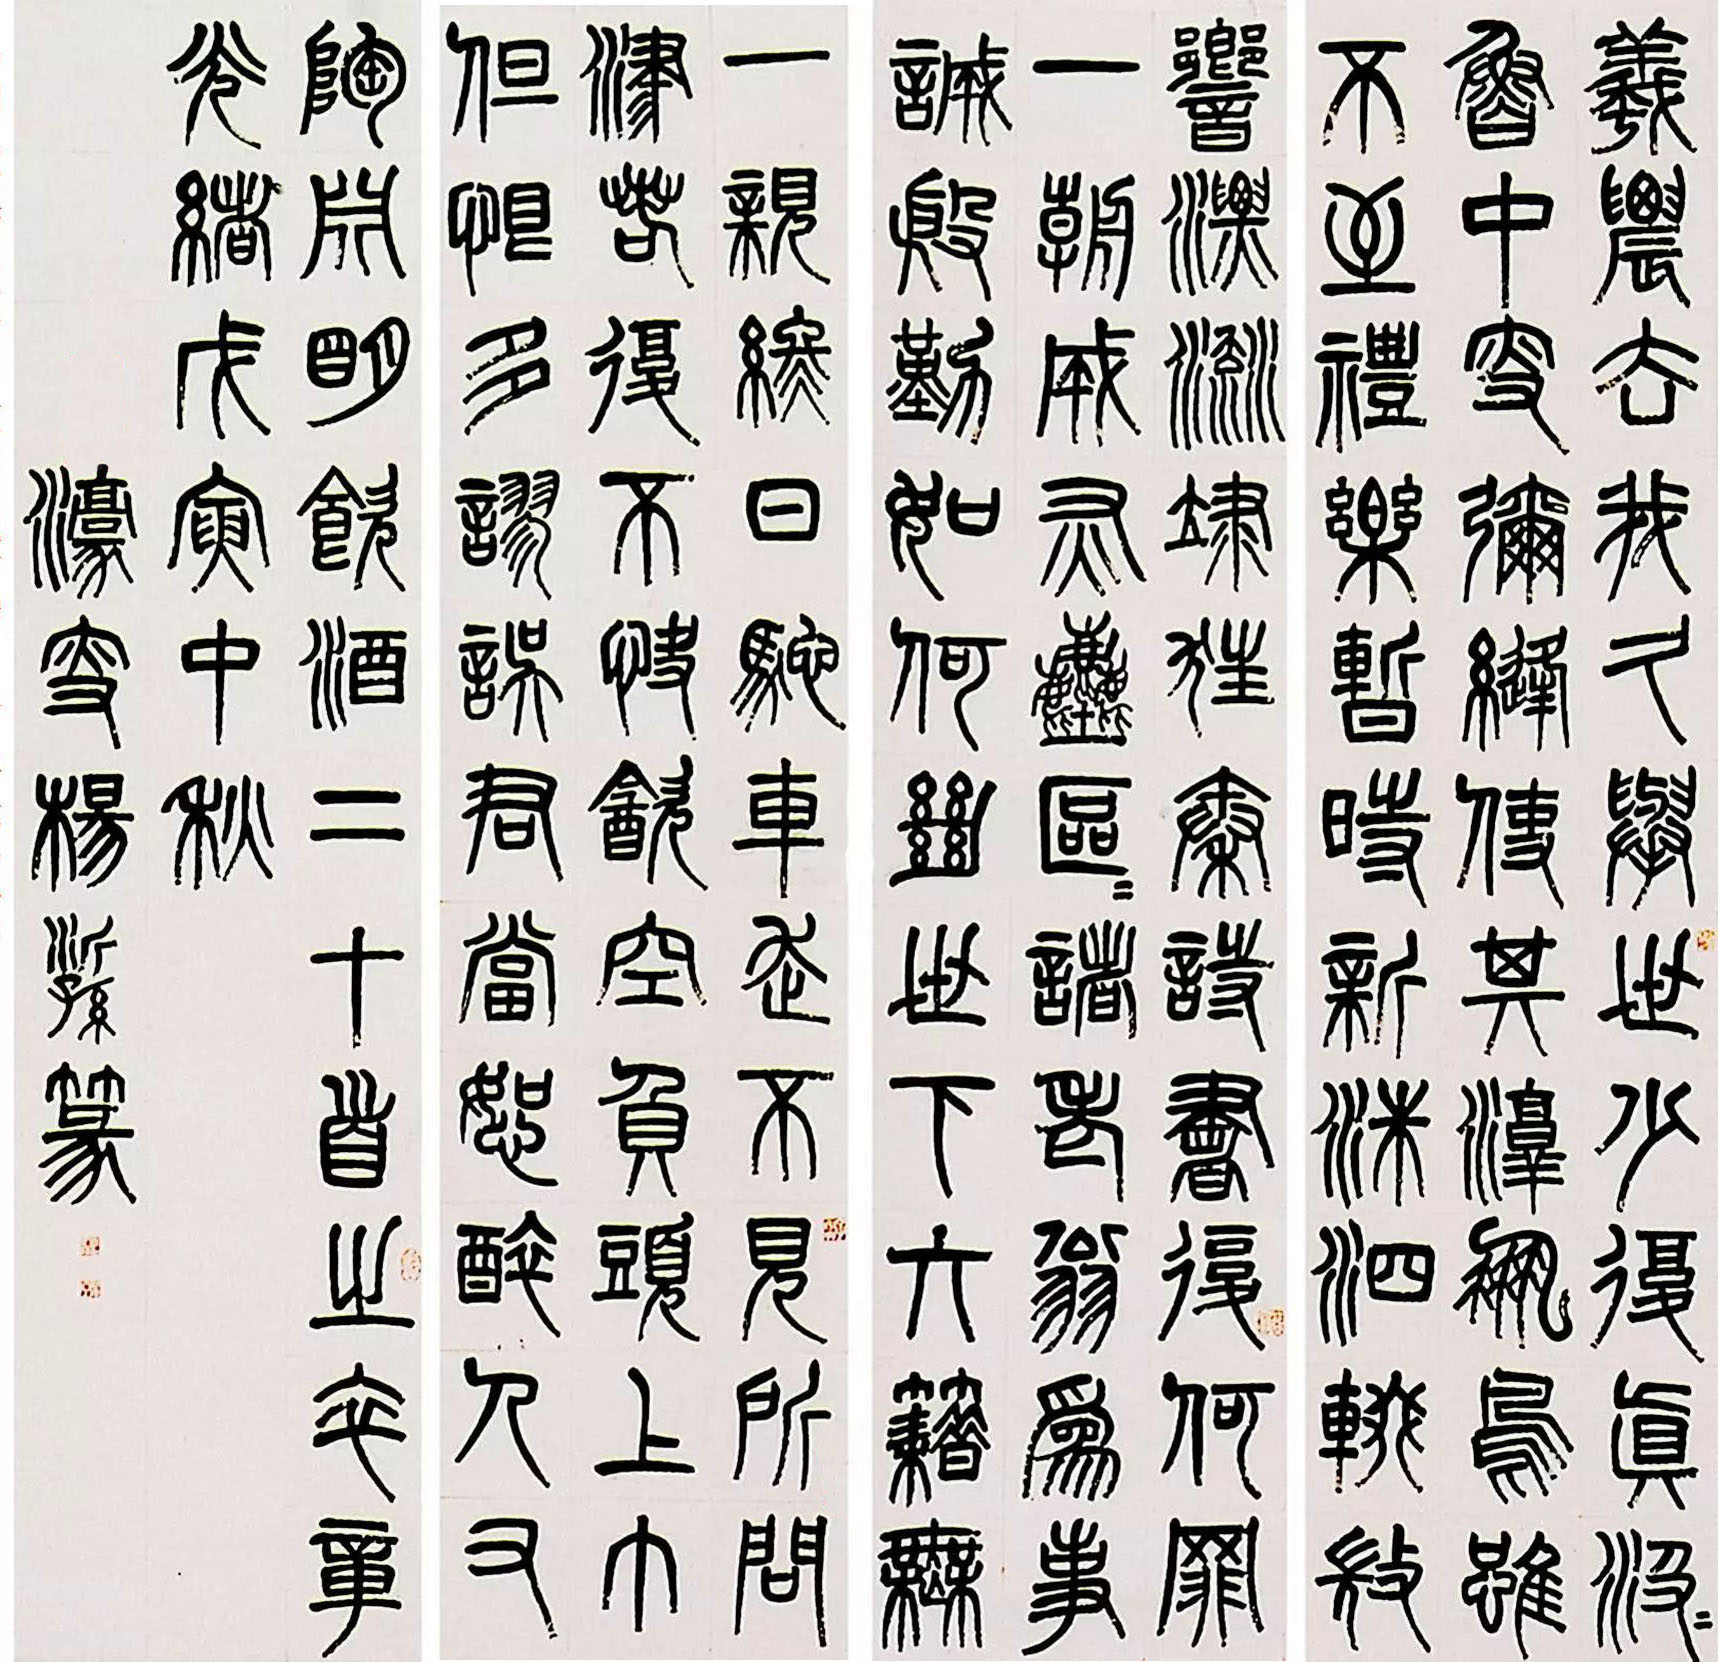 羲農去我久舉世少復真汲〻
魯中叟彌縫使其淳鳳鳥雖
不至禮樂暫時新洙泗輟微
響漂流逮狂秦詩書復何罪
一朝成灰塵區〻諸老翁爲事
誠殷勤如何絕世下六籍無
一親終日馳車走不見所問
津若復不快飲空負頭上巾
但恨多謬誤君當恕醉人又
陶淵明飲酒二十首之卒章
光緒戊寅中秋
濠叟楊沂孫篆